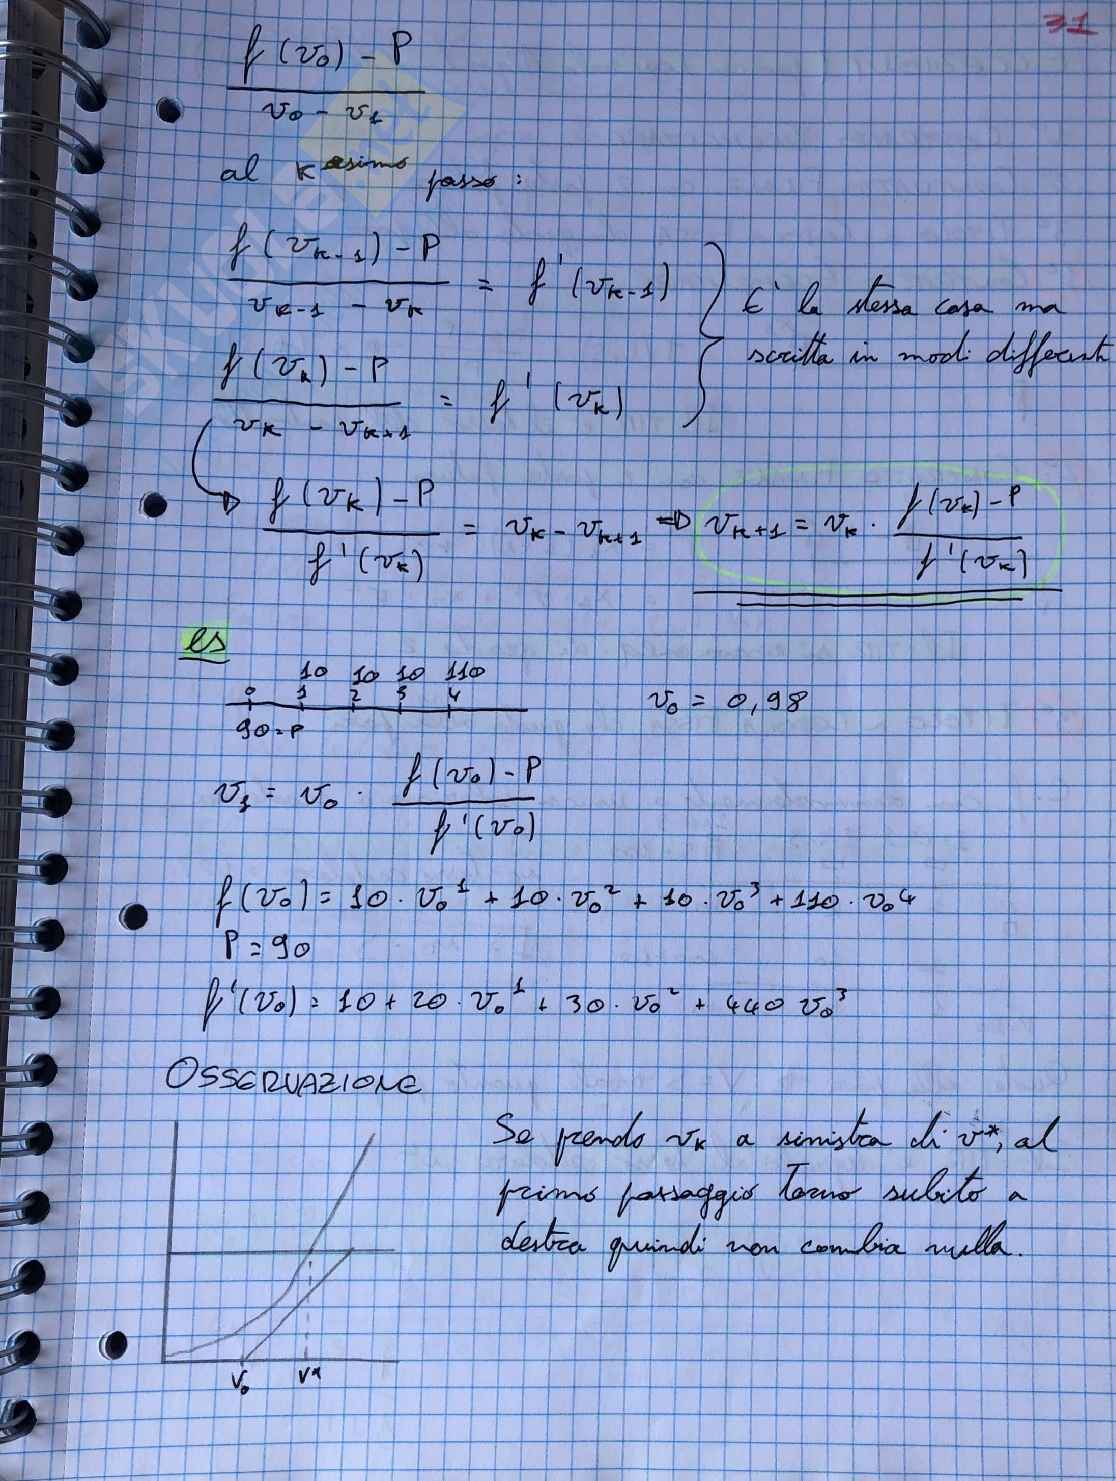 31
f(v₀) - P / v₀ - v₁
al k^esimo passo:
f(vₖ₋₁) - P / vₖ₋₁ - vₖ = f'(vₖ₋₁)
f(vₖ) - P / vₖ - vₖ₊₁ = f'(vₖ)
E' la stessa cosa ma
scritta in modi differenti
f(vₖ) - P / f'(vₖ) = vₖ - vₖ₊₁ ⇒ vₖ₊₁ = vₖ · f(vₖ) - P / f'(vₖ)
es
10 10 10 110
0 1 2 3 4
90 = P
v₀ = 0,98
v₁ = v₀ · f(v₀) - P / f'(v₀)
f(v₀) = 10 · v₀¹ + 10 · v₀² + 10 · v₀³ + 110 · v₀4
P = 90
f'(v₀) = 10 + 20 · v₀¹ + 30 · v₀² + 440 v₀³
OSSERVAZIONE
Se prendo vₖ a sinistra di v*, al
primo passaggio torno subito a
destra quindi non cambia nulla.
v₀ v*